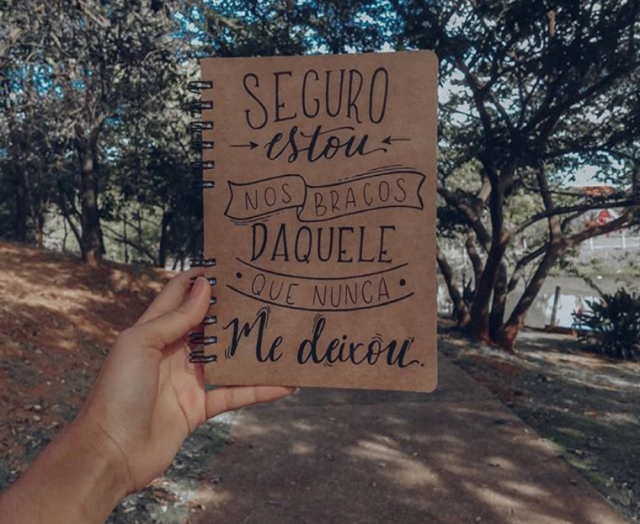 SEGURO
estou
NOS BRAÇOS
DAQUELE
QUE NUNCA
Me deixou.